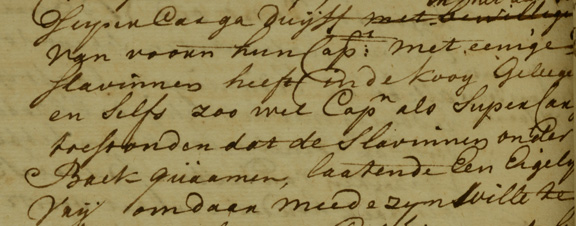 SuperCarga Duijff met bewillige
van voorn hun Cap:t met eenige
slavinnen heeft in de kooy Gelege
en selfs zoo wel Capn als SuperCarg
toestonden dat de Slavinnen onder
Back quaamen, laatende Een Eigely
Vrij om daar meede zyn wille te